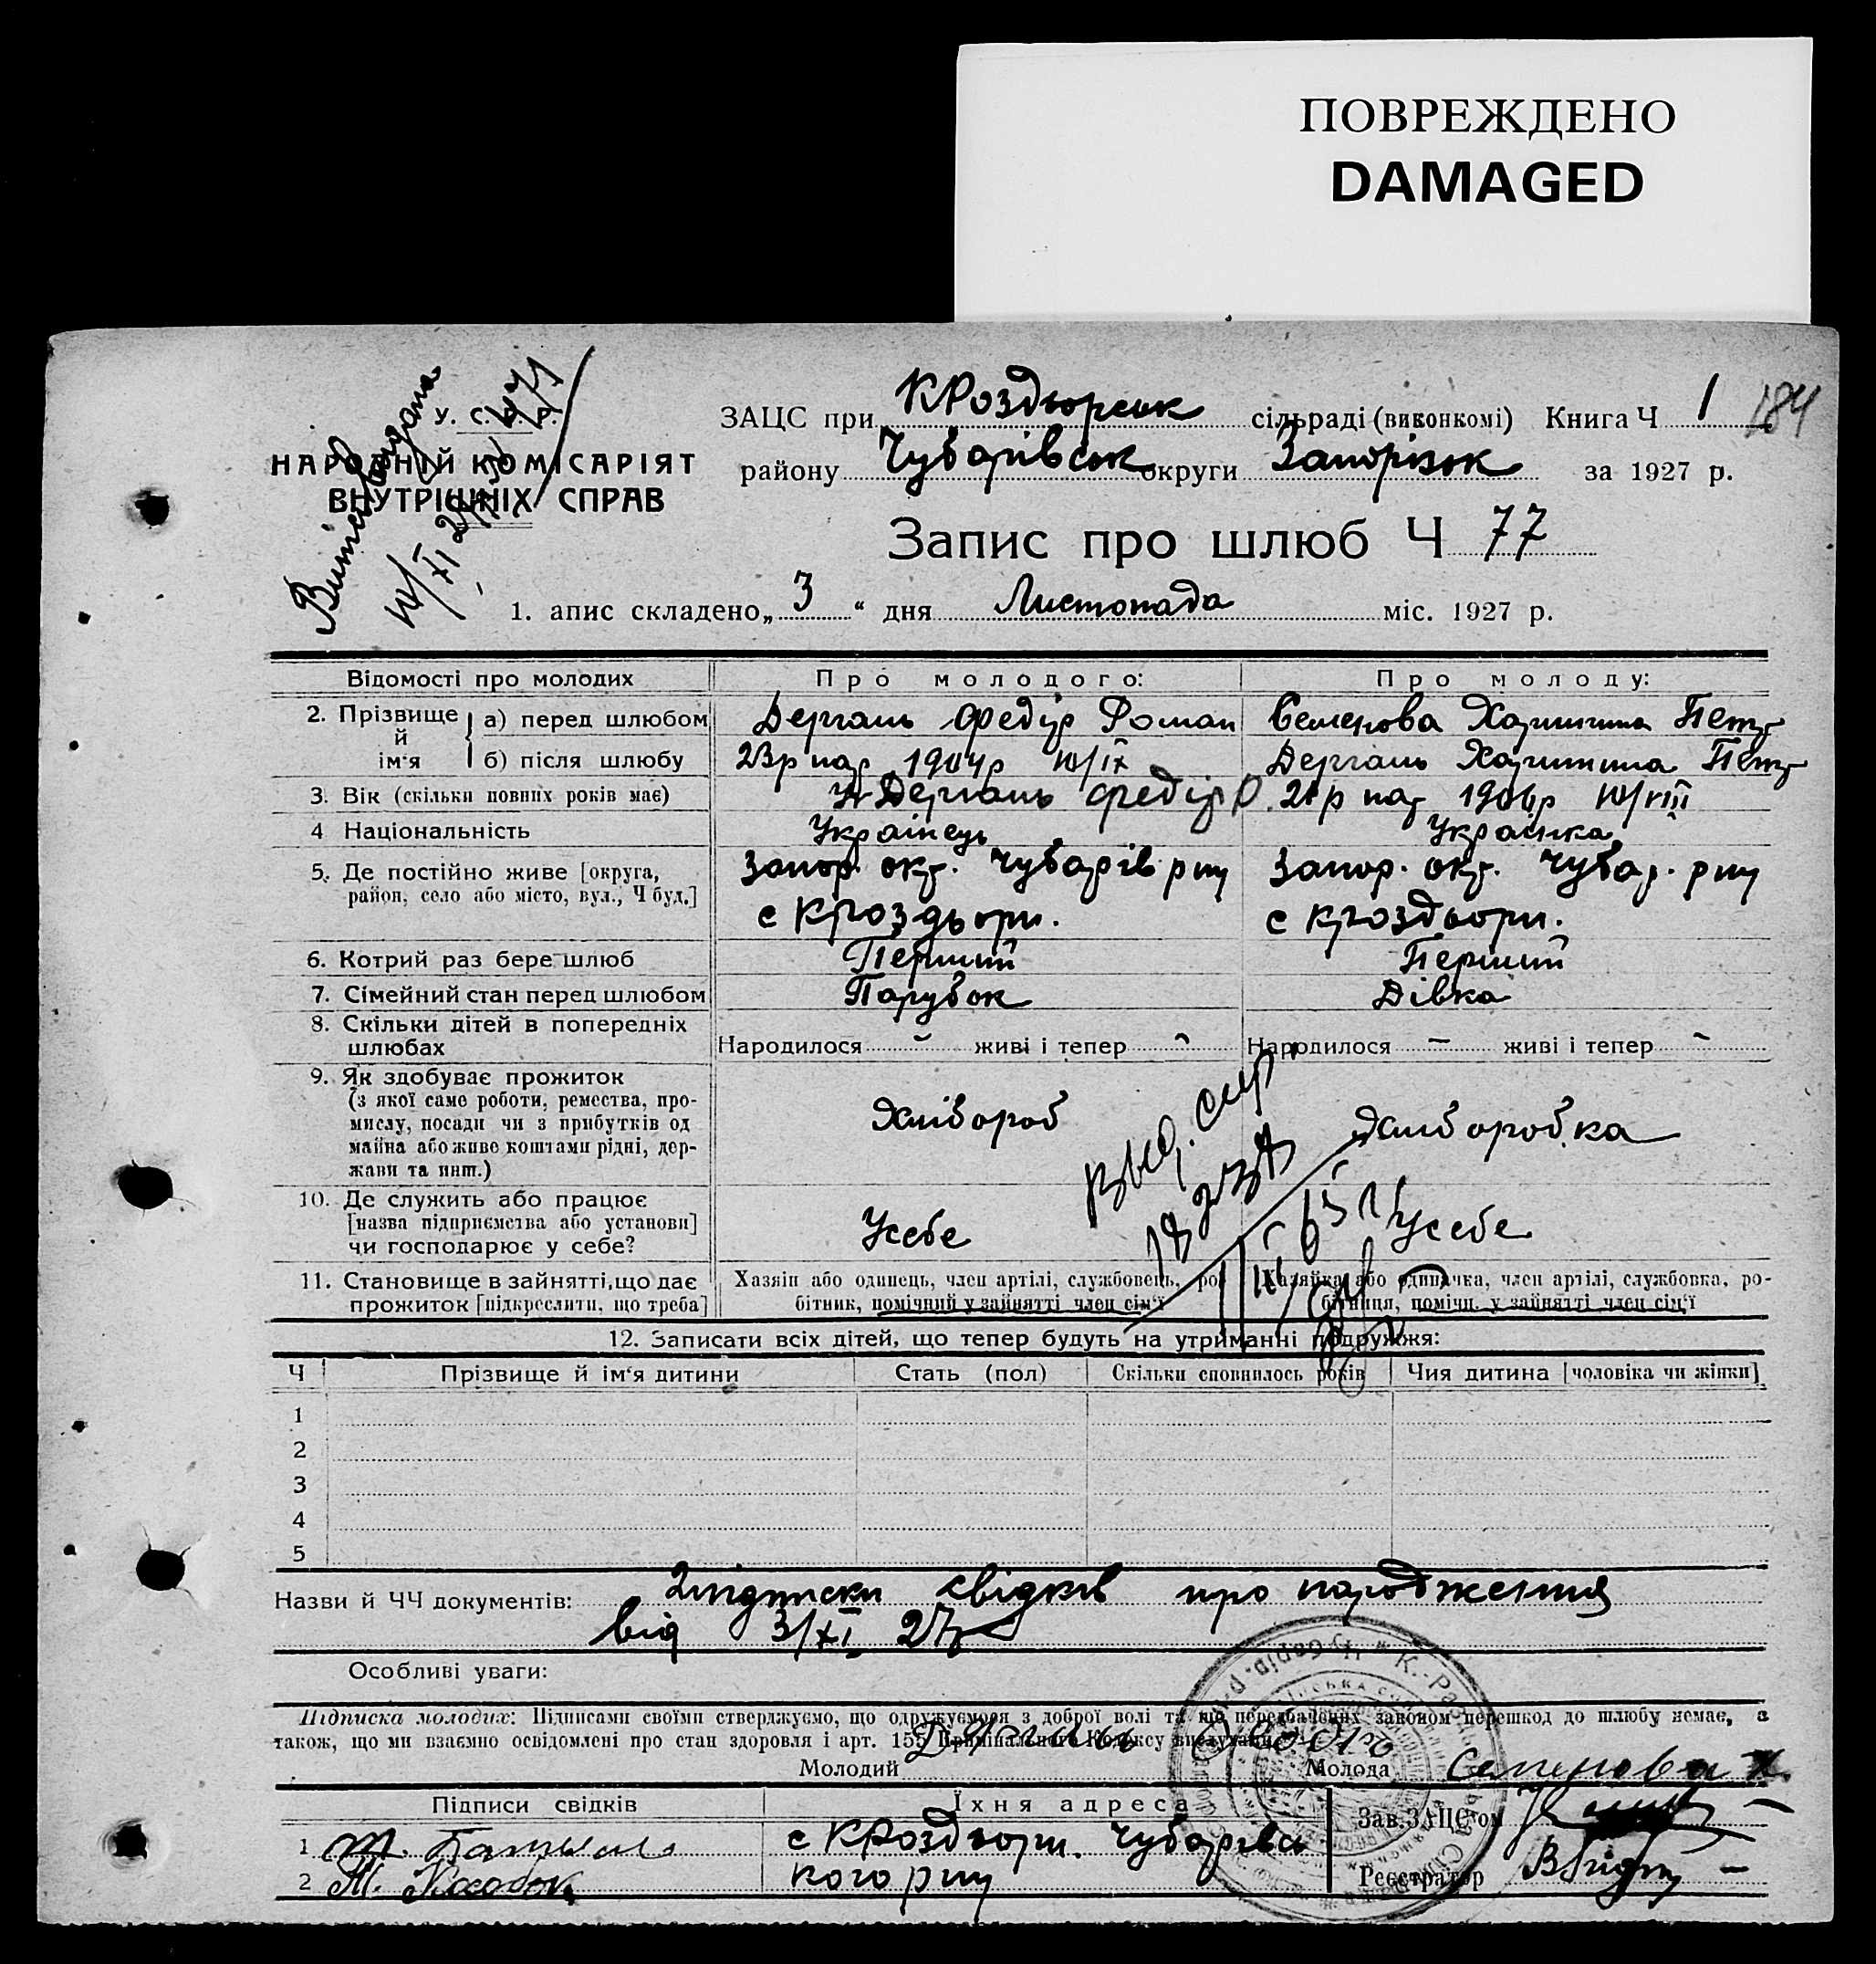 ПОВРЕЖДЕНО
DAMAGED
У. С. Р. Р.
НАРОДНІЙ КОМІСАРІЯТ
ВНУТРІШНІХ СПРАВ
ЗАЦС при КРоздорськ сільраді (виконкомі) Книга Ч 1 184
району Чубарівськ округи Запорізьк за 1927 р.
Запис про шлюб Ч 77
1. апис складено „ 3 “ дня Листопада міс. 1927 р.
Відомості про молодих Про молодого: Про молоду:
2. Прізвище й ім‘я а) перед шлюбом Дергань Федір Роман Семенова Харитина Петр
б) після шлюбу 23р нар 1904р 10/IX Дергань Харитина Петр
3. Вік (скільки повних років має) Дергань Федір Р. 21р нар 1906р 10/VIII
4 Національність Українець Українка
5. Де постійно живе [округа, район, село або місто, вул., Ч буд.] Запор. окр. Чубарів р-ну Запор. окр. Чубар. р-ну
с КРоздори. с КРоздори.
6. Котрий раз бере шлюб Перший Перший
7. Сімейний стан перед шлюбом Парубок Дівка
8. Скільки дітей в попередніх шлюбах Народилося - живі і тепер - Народилося - живі і тепер -
9. Як здобуває прожиток
(з якої саме роботи, ремества, про-
мислу, посади чи з прибутків од
майна або живе коштами рідні, дер-
жави та инш.)
Хлібороб Хліборобка
10. Де служить або працює
[назва підприємства або установи]
чи господарює у себе?
Усебе Усебе
11. Становище в зайнятті, що дає
прожиток [підкреслити, що треба]
Хазяїн або одинець, член артілі, службовець, ро
бітник, помічний у зайнятті член сім‘ї
Хазяйка або одиначка, член артілі, службовка, ро-
бітниця, помічн. у зайнятті член сім‘ї
12. Записати всіх дітей, що тепер будуть на утриманні подружжя:
Ч Прізвище й ім‘я дитини Стать (пол) Скільки сповнилось років Чия дитина [чоловіка чи жінки]
1
2
3
4
5
Назви й ЧЧ документів: 2 підписки свідків про народження
від 3/XI 27р
Особливі уваги:
Підписка молодих: Підписами своїми стверджуємо, що одружуємося з доброї волі та що передбачених законом перешкод до шлюбу немає, а
також, що ми взаємно освідомлені про стан здоровля і арт. 155 Кримінального Кодексу вислухали.
Молодий Молода Семенова Х.
Підписи свідків Їхня адреса Зав. ЗАЦС‘ом
1 с КРоздори. Чубарівсь
2 кого р-ну Реєстратор